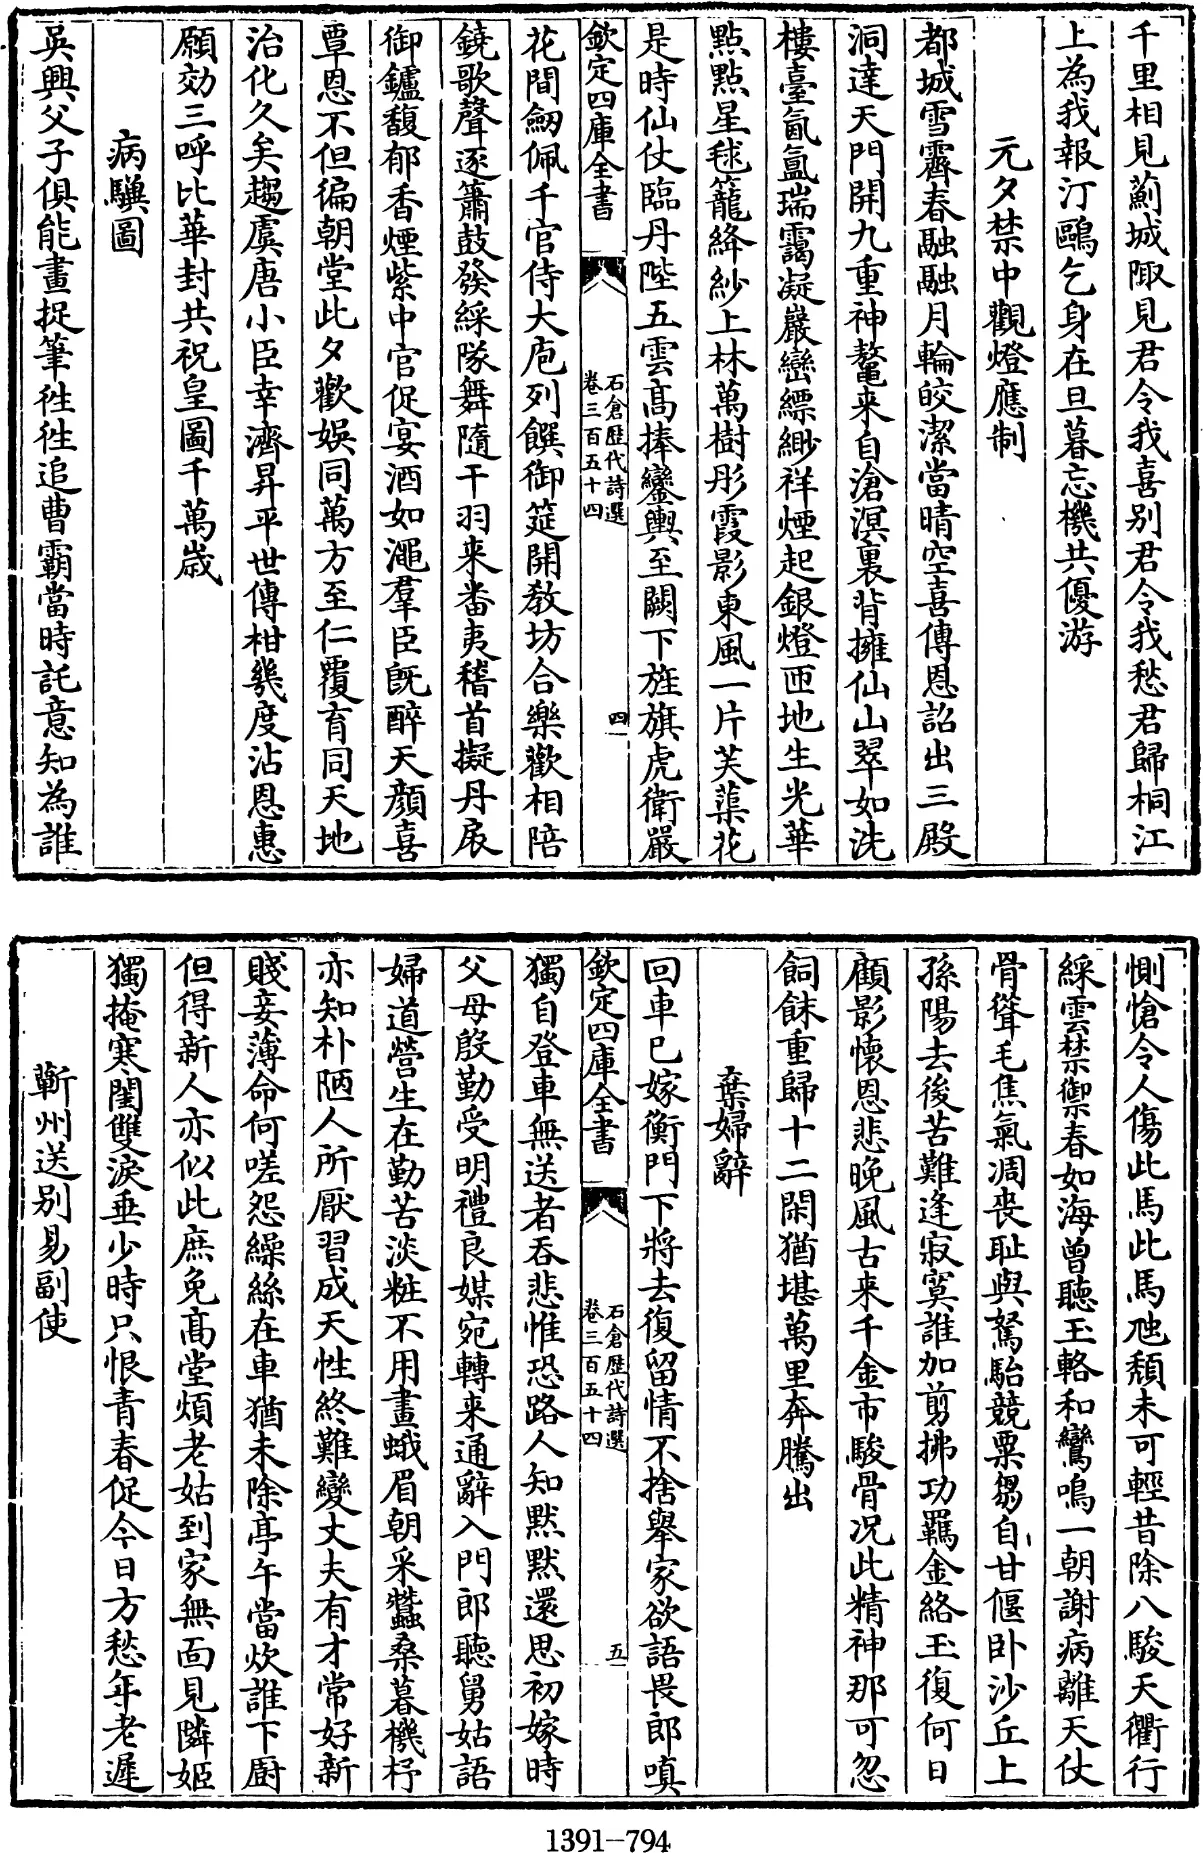 千里相見薊城陬見君令我喜别君令我愁君歸桐江
上為我報汀鷗乞身在旦暮忘機共優游
元夕禁中觀燈應制
都城雪霽春融融月輪皎潔當晴空喜傳恩詔出三殿
洞達天門開九重神鰲来自滄溟裏背擁仙山翠如洗
樓臺氤氲瑞靄凝巖巒縹緲祥煙起銀燈匝地生光華
點點星毬籠絳紗上林萬樹彤霞影東風一片芙蕖花
是時仙仗臨丹陛五雲髙捧鑾輿至闕下旌旗虎衛嚴
欽定四庫全書
石倉歷代詩選
卷三百五十四
四
花間劒佩千官侍大庖列饌御筵開敎坊合樂歡相陪
鐃歌聲逐簫鼓發綵隊舞隨干羽来畨夷稽首擬丹扆
御鑪馥郁香煙紫中官促宴酒如澠羣臣旣醉天顔喜
覃恩不但徧朝堂此夕歡娱同萬方至仁覆育同天地
治化久矣趨虞唐小臣幸濟昇平世傳柑幾度沾恩惠
願効三呼比華封共祝皇圖千萬歳
病驥圖
吳興父子俱能畫捉筆徃徃追曹霸當時託意知為誰
惻愴令人傷此馬此馬虺頽未可輕昔除八駿天衢行
綵雲禁禦春如海曾聽玉輅和鸞鳴一朝謝病離天仗
骨聳毛焦氣凋喪耻與駑駘競粟芻自甘偃卧沙丘上
孫陽去後苦難逢寂寞誰加剪拂功羈金絡玉復何日
顧影懐恩悲晚風古来千金市駿骨况此精神那可忽
飼餗重歸十二閑猶堪萬里奔騰出
棄婦辭
回車已嫁衡門下將去復留情不捨舉家欲語畏郎嗔
欽定四庫全書
石倉歷代詩選
卷三百五十四
五
獨自登車無送者吞悲惟恐路人知黙黙還思初嫁時
父母殷勤受明禮良媒宛轉来通辭入門郎聽舅姑語
婦道營生在勤苦淡粧不用畫蛾眉朝采蠶桑暮機杼
亦知朴陋人所厭習成天性終難變丈夫有才常好新
賤妾薄命何嗟怨繰絲在車猶未除亭午當炊誰下厨
但得新人亦似此庶免髙堂煩老姑到家無面見隣姬
獨掩寒閨雙淚垂少時只恨青春促今日方愁年老遲
蘄州送别易副使
1391-794